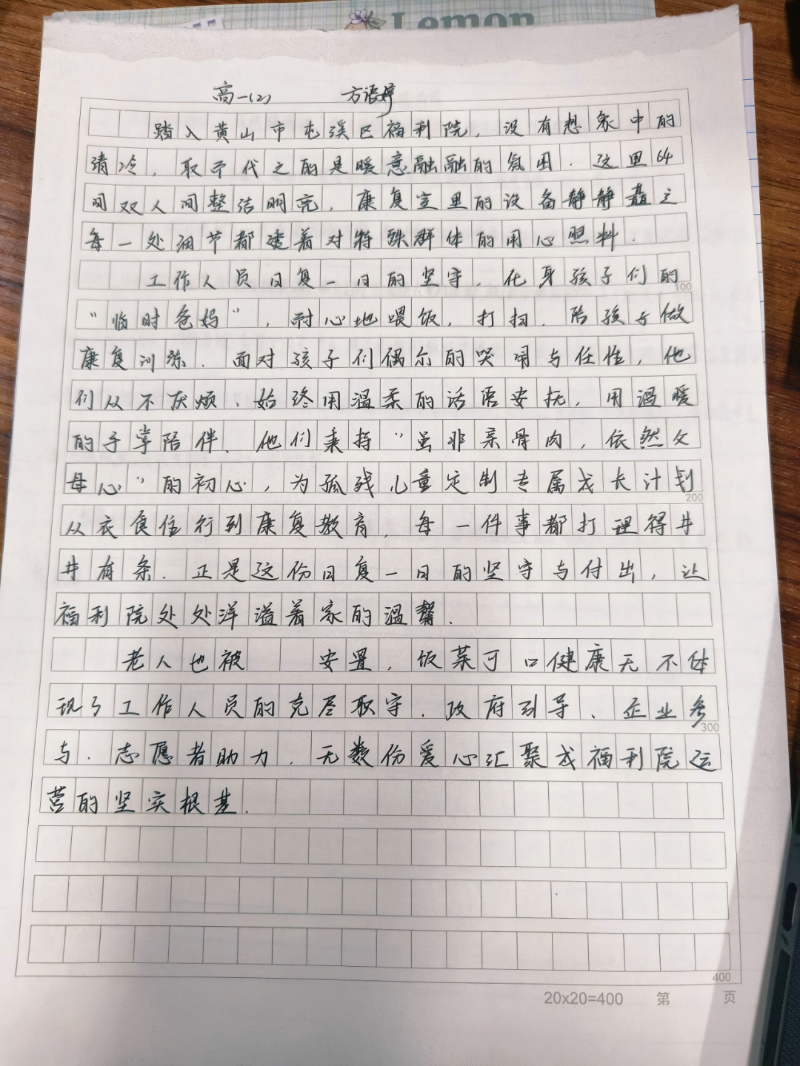 Lemon
高一(2) 方语婷
踏入黄山市屯溪区福利院，没有想象中的
清冷，取而代之的是暖意融融的氛围．这里64
间双人间整洁明亮，康复室里的设备静静矗立
每一处细节都透着对特殊群体的用心照料．
工作人员日复一日的坚守，化身孩子们的
100
“临时爸妈”，耐心地喂饭，打扫．陪孩子做
康复训练．面对孩子们偶尔的哭闹与任性，他
们从不厌烦．始终用温柔的话语安抚，用温暖
的手掌陪伴．他们秉持“虽非亲骨肉，依然父
母心”的初心，为孤残儿童定制专属成长计划
200
从衣食住行到康复教育，每一件事都打理得井
井有条．正是这份日复一日的坚守与付出，让
福利院处处洋溢着家的温馨．
老人也被 安置，饭菜可口健康无不体
现了工作人员的克尽职守．政府引导、企业参
300
与．志愿者助力．无数份爱心汇聚成福利院运
营的坚实根基．
400
20x20=400 第 页